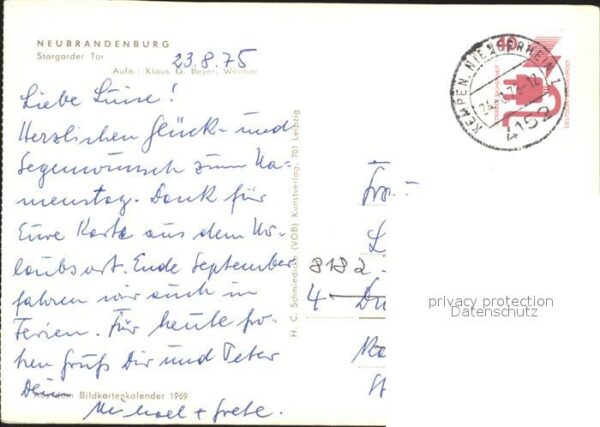 NEUBRANDENBURG
Stargarder Tor
Aufn.: Klaus G. Beyer, Weimar
23.8.75
Liebe Luise!
Herzlichen Glück- und
Segenwunsch zum Na-
menstag. Dank für
Eure Karte aus dem Ur-
laubsort. Ende September
fahren wir auch in
Ferien. Für heute fro-
hen Gruß Dir und Peter
Bildkartenkalender 1969
Michael + Grete.
H. C. Schmiedicke (VOB) Kunstverlag, 701 Leipzig
KEMPEN, NIEDERRHEIN 1
4152
40
DEUTSCHE BUNDESPOST
L
8182
4
Du
privacy protection
Datenschutz